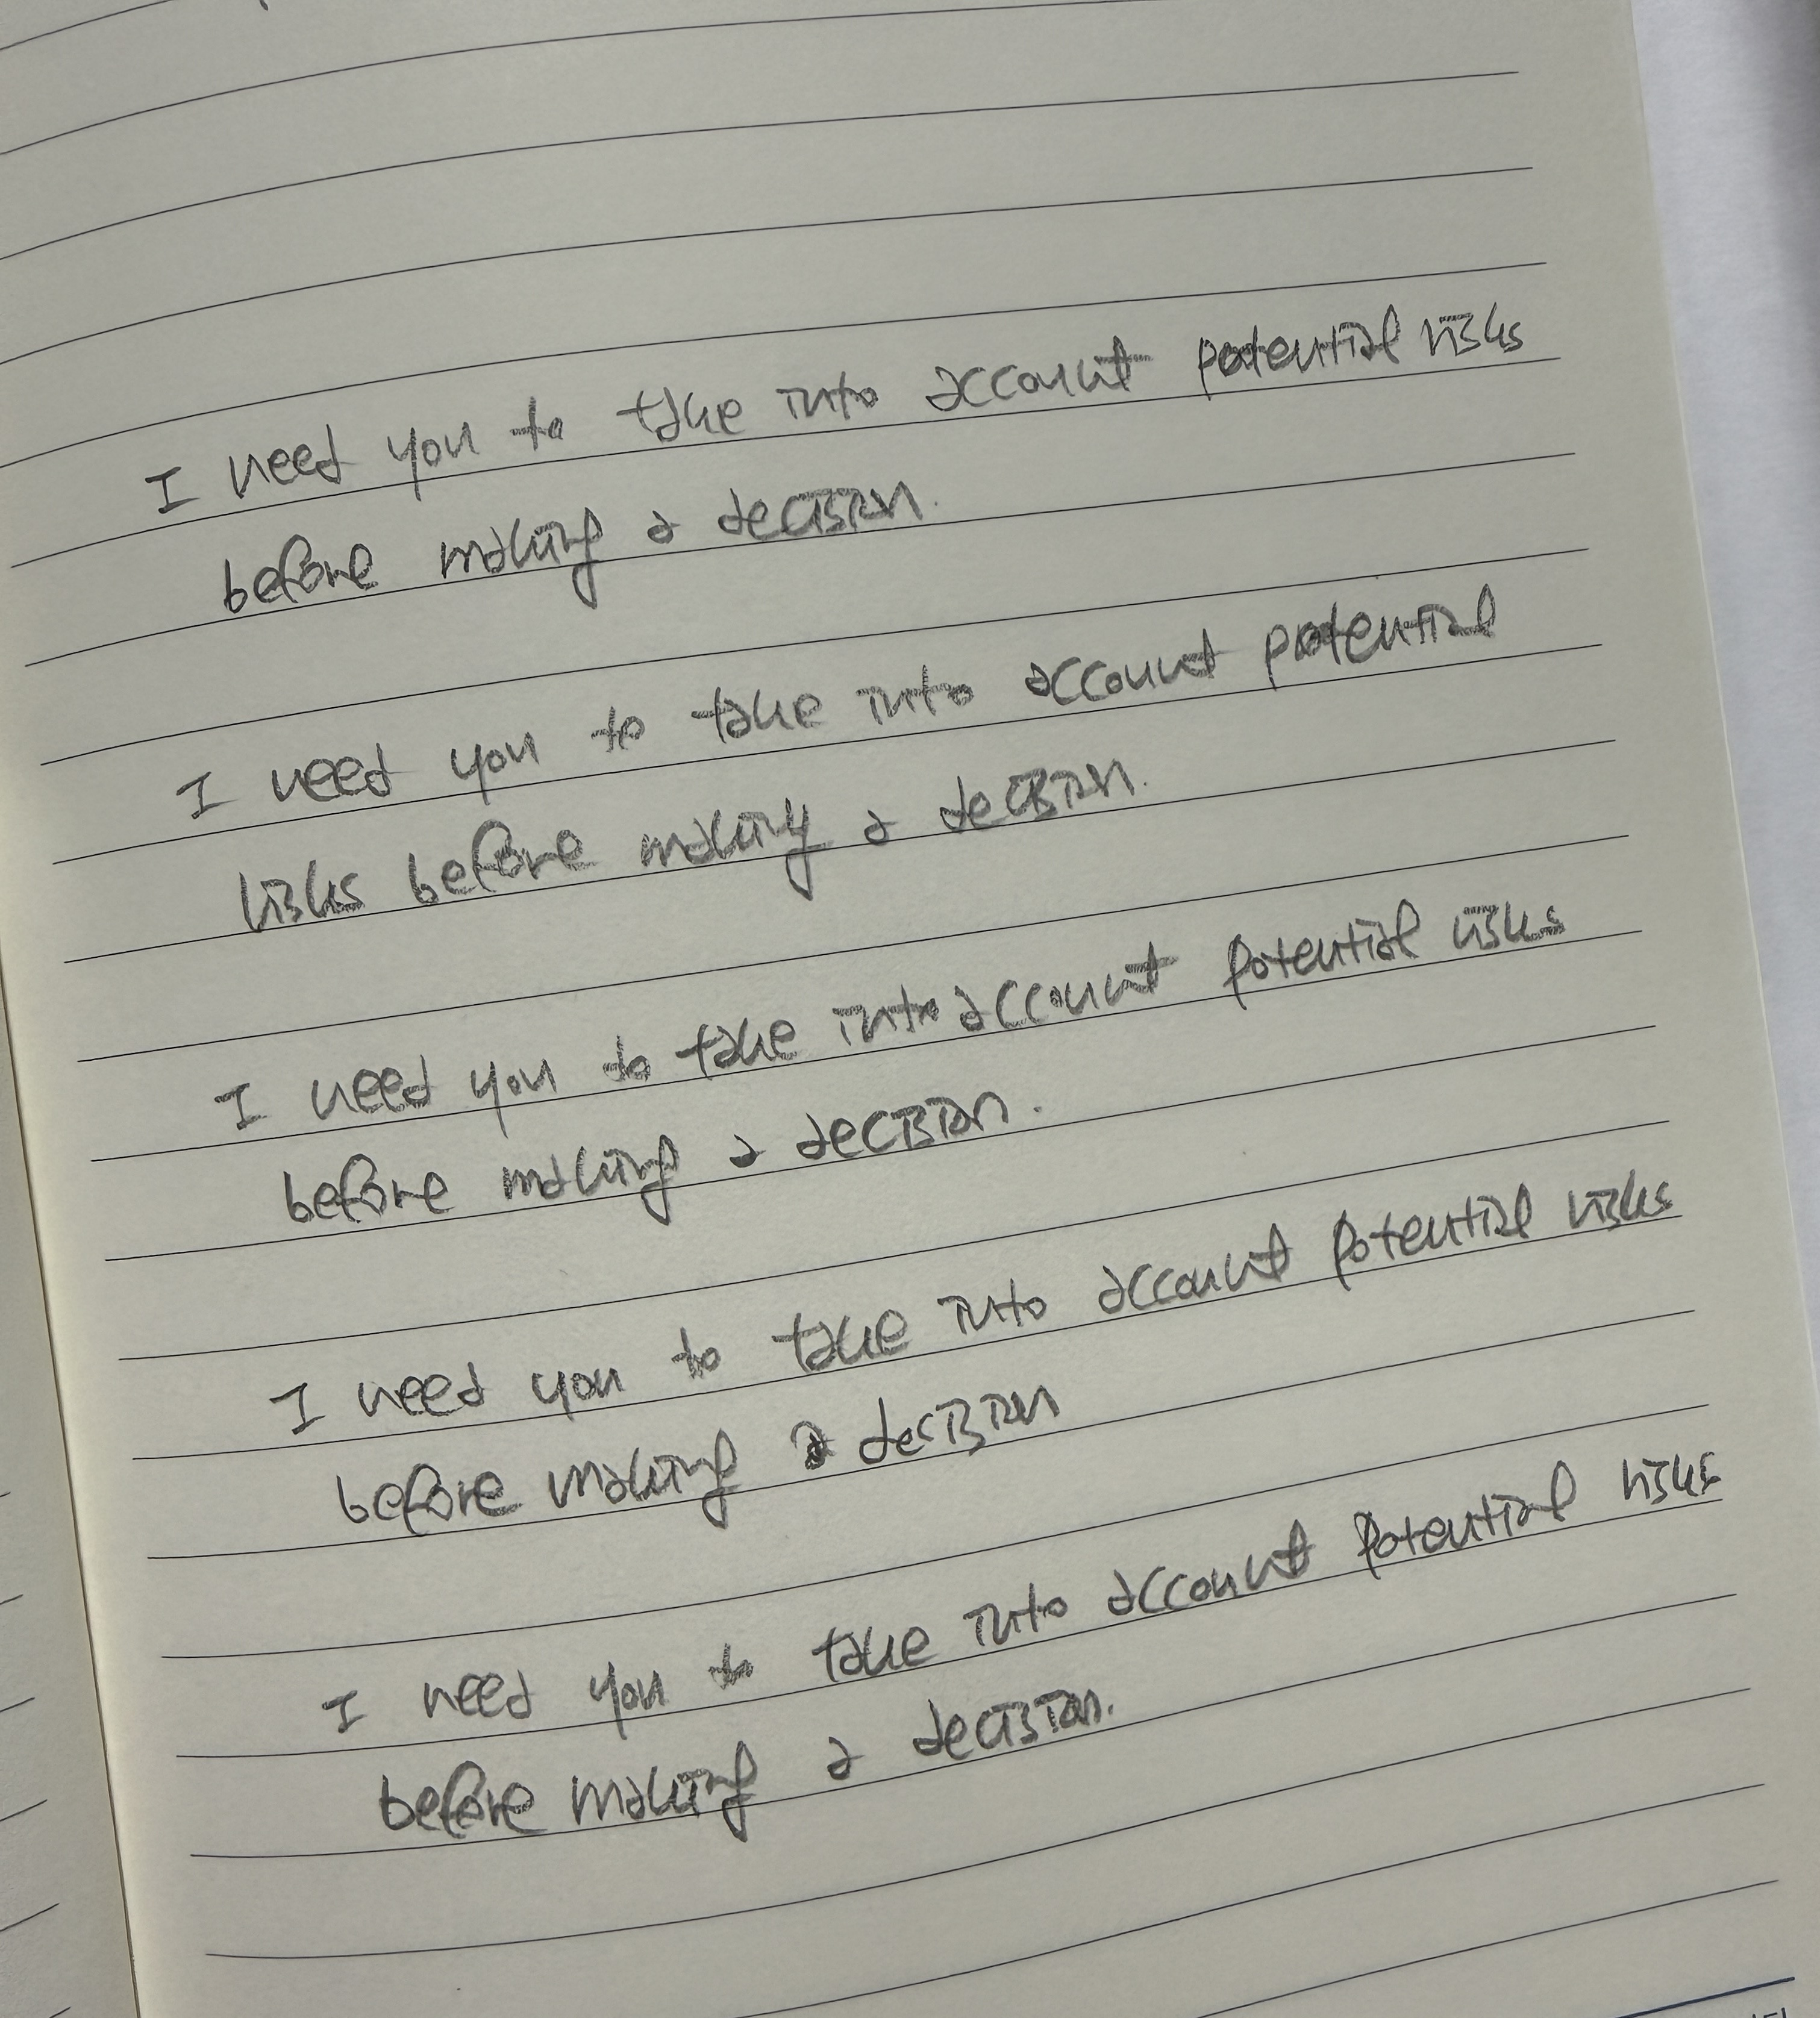 I need you to take into account potential risks
before making a decision.
I need you to take into account potential
risks before making a decision.
I need you to take into account potential risks
before making a decision.
I need you to take into account potential risks
before making a decision
I need you to take into account potential risks
before making a decision.